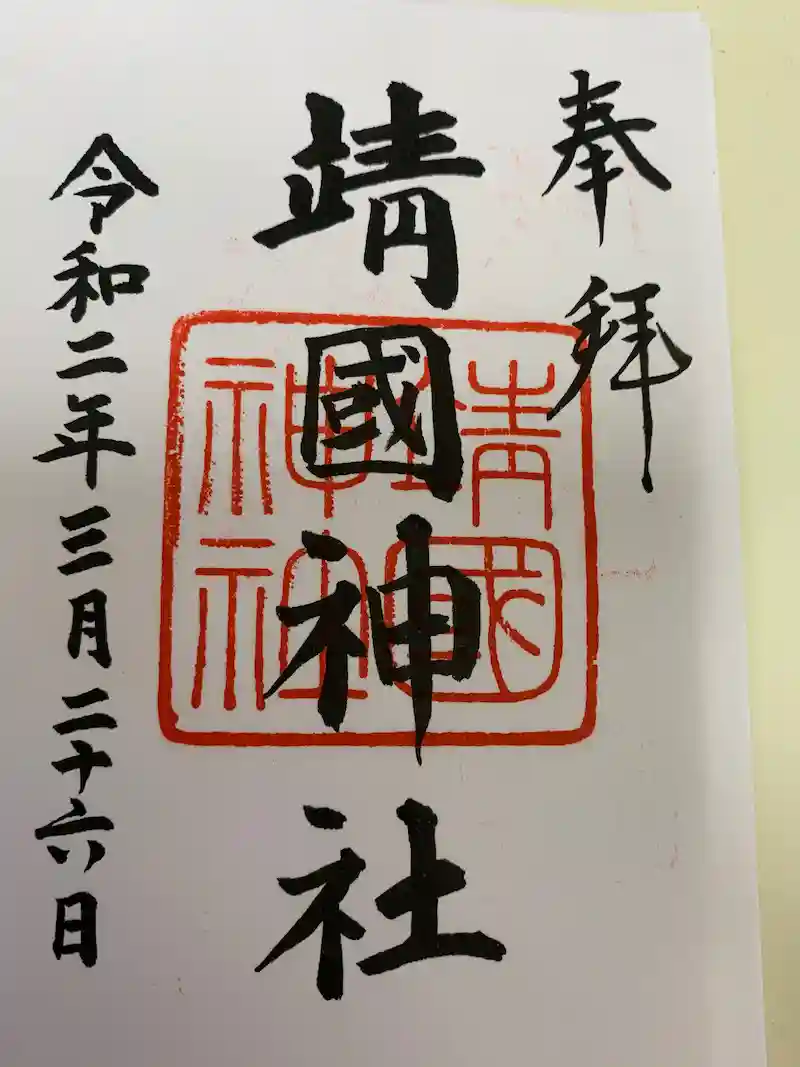 奉拝
靖國神社
靖國神社
令和二年三月二十六日